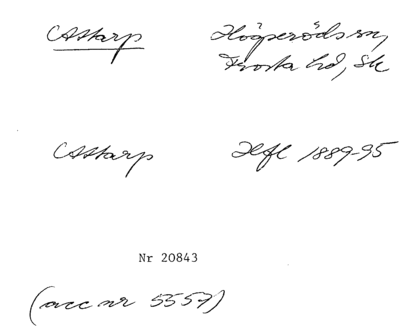 Attarp Högseröds sn,
Frosta hd, Sk
Attarp Hfl 1889-95
Nr 20843
(acc nr 5557)